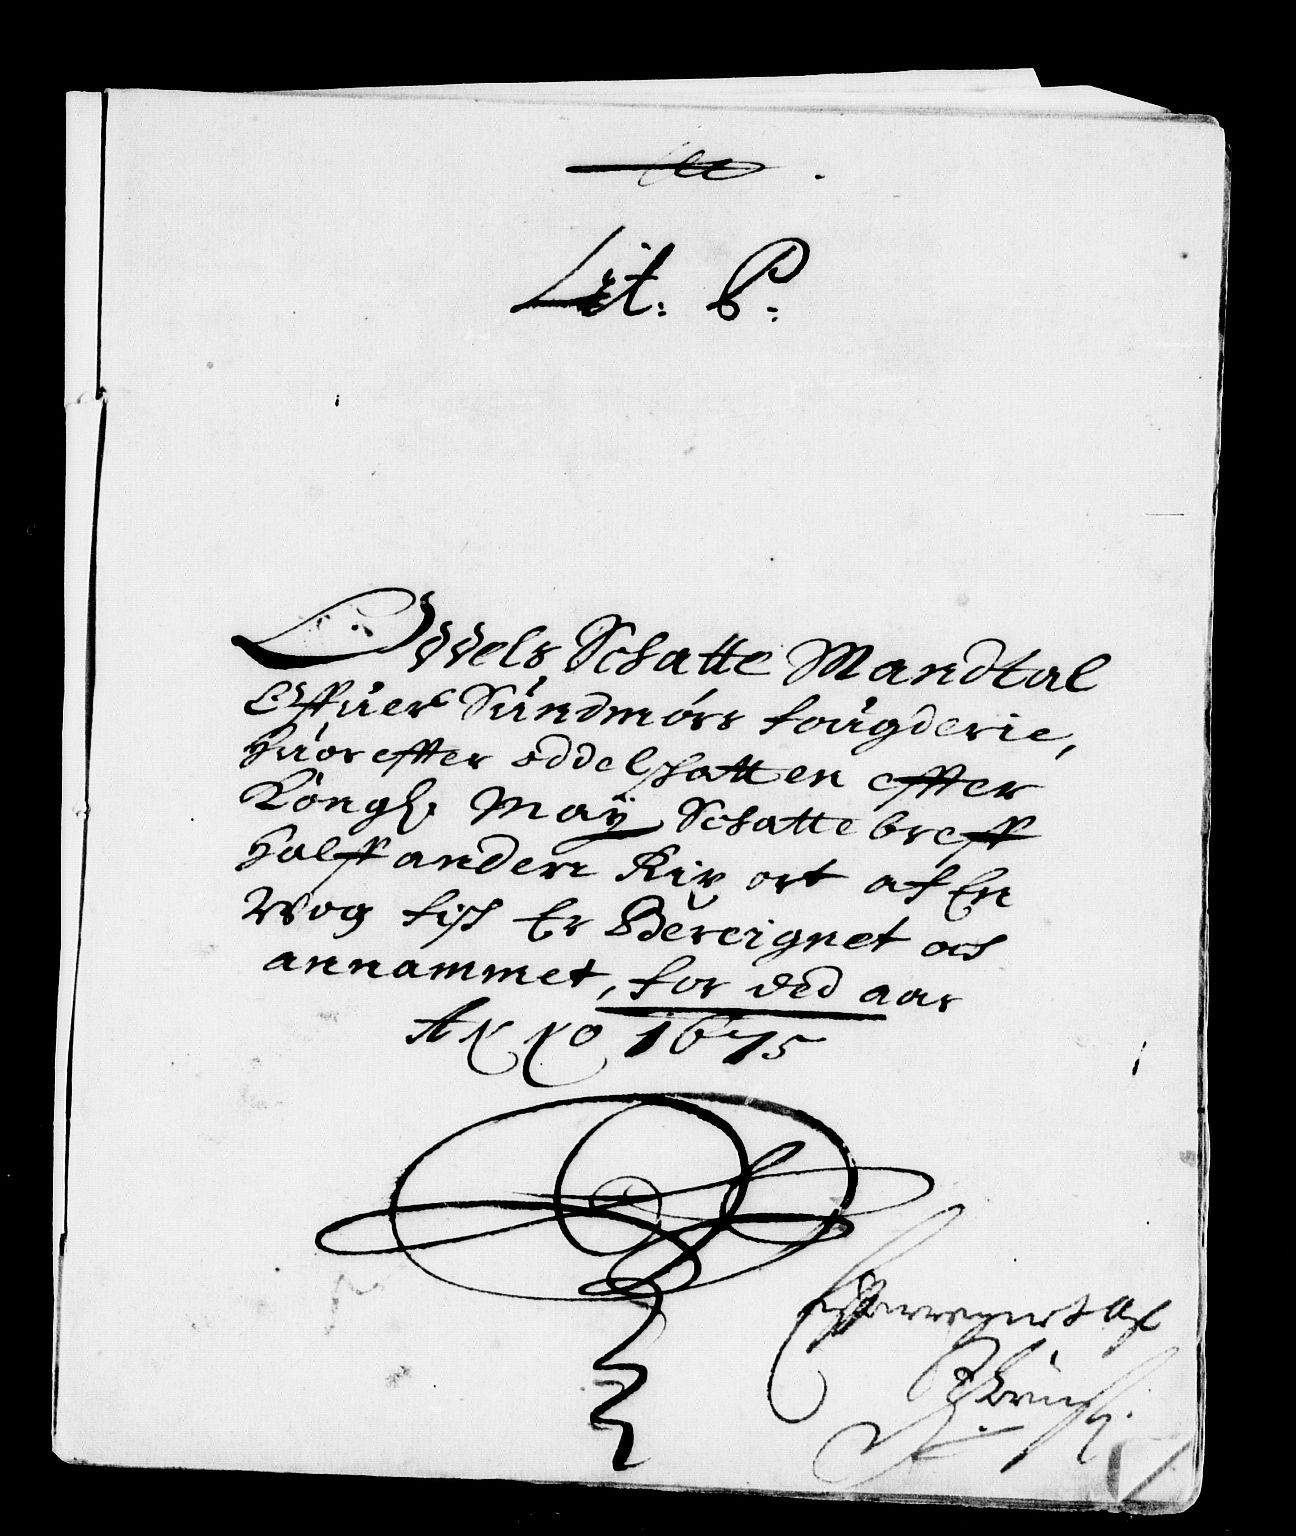 Lit: P:
Odels Schatte Mandtal
Offuer Sündmörs fougderie,
Huor effter oddelschatten effter
Köngl. May Schatte breff
Halff anden Rix ort af En
Wog fisch Er Bereignet och
annammet, for ded aar
Anno 1675